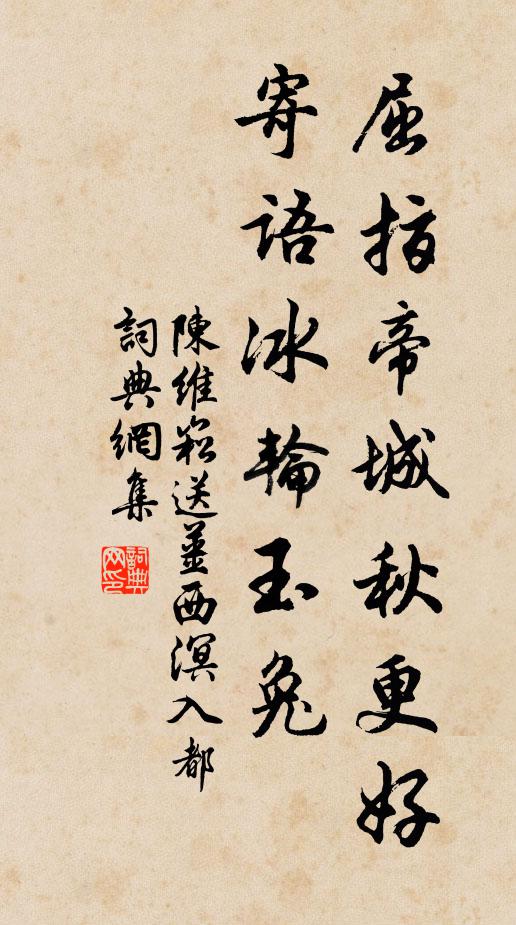 屈指帝城秋更好
寄語冰輪玉兔
陳維崧送薑西溟入都
詞典網集
詞典网印